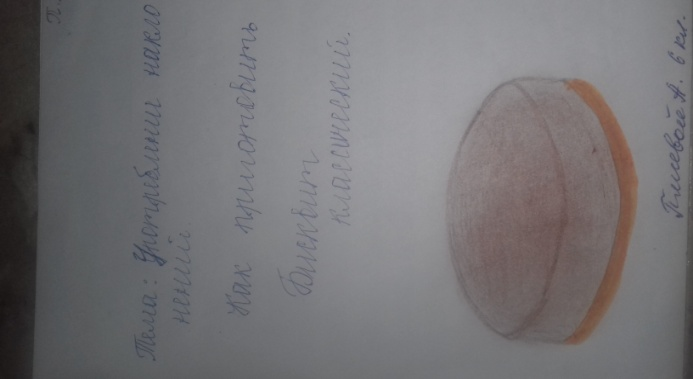 П.
Тема: Употреблении накло
нений.
Как приготовить
Бисквит
классический.
Плиевой А. 6 кл.